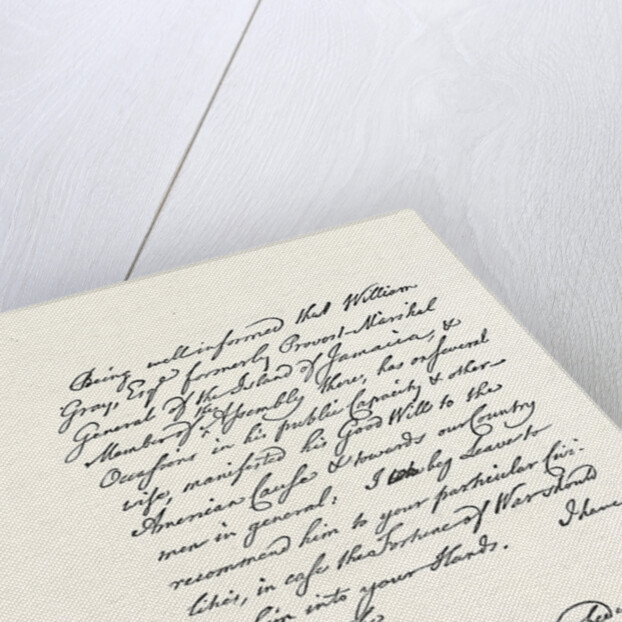 Being well informed that William
Gray, Esqr. formerly Provost-Marshal
General of the Island of Jamaica, &
Member of the Assembly there, has on several
Occasions in his public Capacity & other-
wise, manifested his Good Will to the
American Cause & towards our Country
men in general: I beg Leave to
recommend him to your particular Civi-
lities, in case the Fortune of War should
him into your Hands. I have